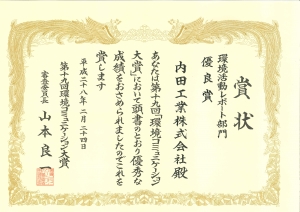 賞状
環境活動レポート部門
優良賞
内田工業株式会社殿
あなたは第十九回「環境コミュニケーション
大賞」において頭書のとおり優秀な
成績をおさめられましたのでこれを
賞します
平成二十八年二月二十四日
第十九回環境コミュニケーション大賞
審査委員長 山本良一